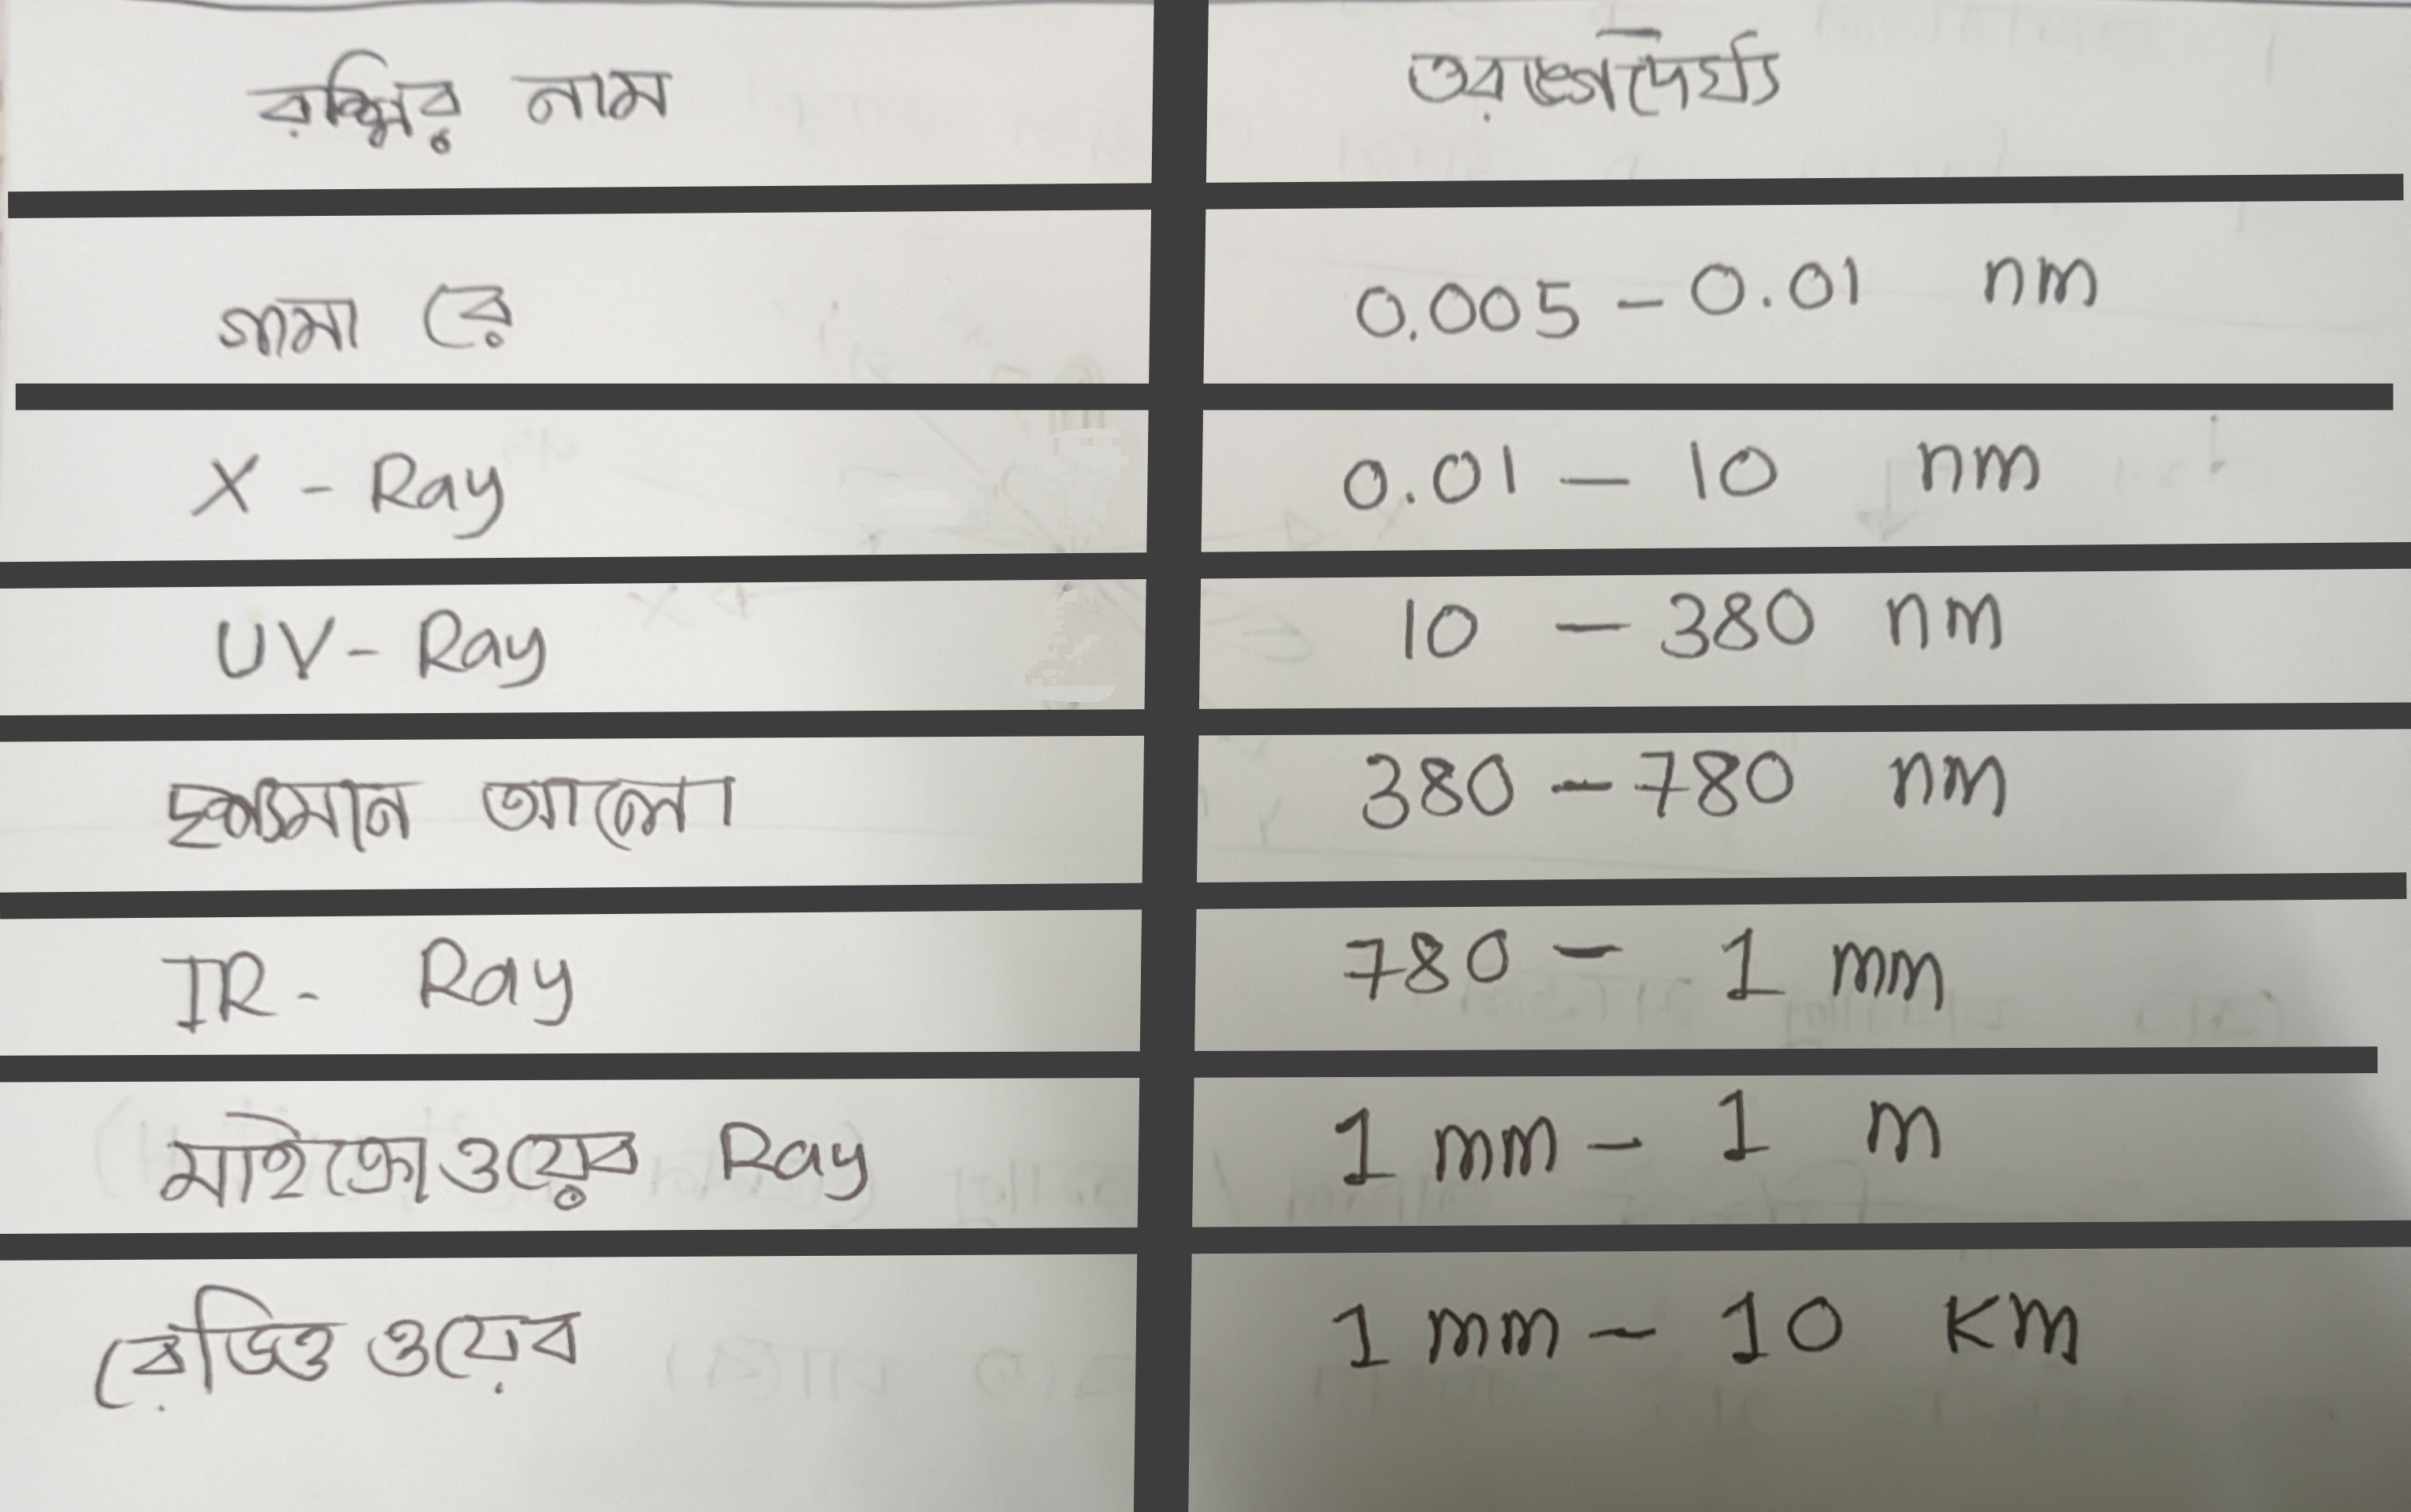 রশ্মির নাম তরঙ্গদৈর্ঘ্য
গামা রে 0.005 - 0.01 nm
X - Ray 0.01 - 10 nm
UV - Ray 10 - 380 nm
দৃশ্যমান আলো 380 - 780 nm
IR - Ray 780 - 1 mm
মাইক্রোওয়েব Ray 1 mm - 1 m
রেডিও ওয়েব 1 mm - 10 Km